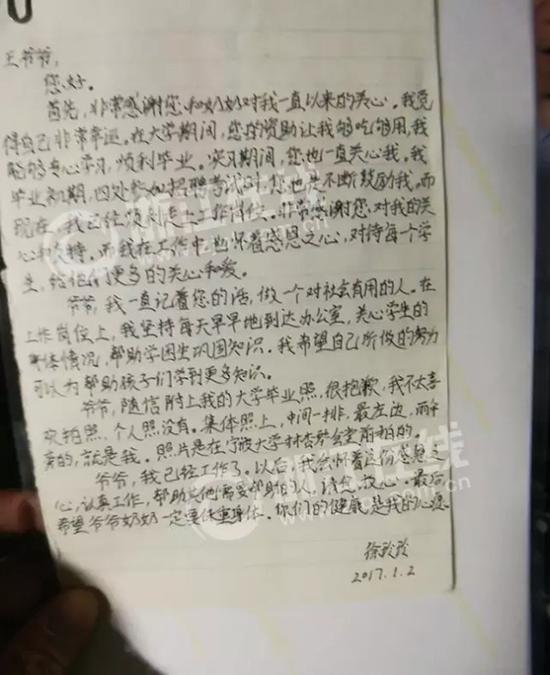 王爷爷,
您好。
首先,非常感谢您和奶奶对我一直以来的关心。我觉
得自己非常幸运。在大学期间,您的资助让我够吃够用,我
能够专心学习,顺利毕业。实习期间,您也一直关心我。我
毕业初期,四处参加招聘考试时,您也是不断鼓励我。而
现在,我已经顺利走上工作岗位。非常感谢您,对我的关
心和支持。而我在工作中也怀着感恩之心,对待每个学
生,给他们更多的关心和爱。
爷爷,我一直记着您的话,做一个对社会有用的人。在
工作岗位上,我坚持每天早早地到达办公室,关心学生的
身体情况,帮助学困生巩固知识。我希望自己所做的努力
可以为帮助孩子们学到更多知识。
爷爷,随信附上我的大学毕业照,很抱歉,我不太喜
欢拍照,个人照没有。集体照上,中间一排,最左边,
的,就是我。照片是在宁波大学林杏琴会堂前拍的。
爷爷,我已经工作了。以后,我会怀着这份感恩之
心,认真工作,帮助其他需要帮助的人,请您放心。最后,
希望爷爷奶奶一定要保重身体。你们的健康是我的心愿。
徐
2017.1.2
在线